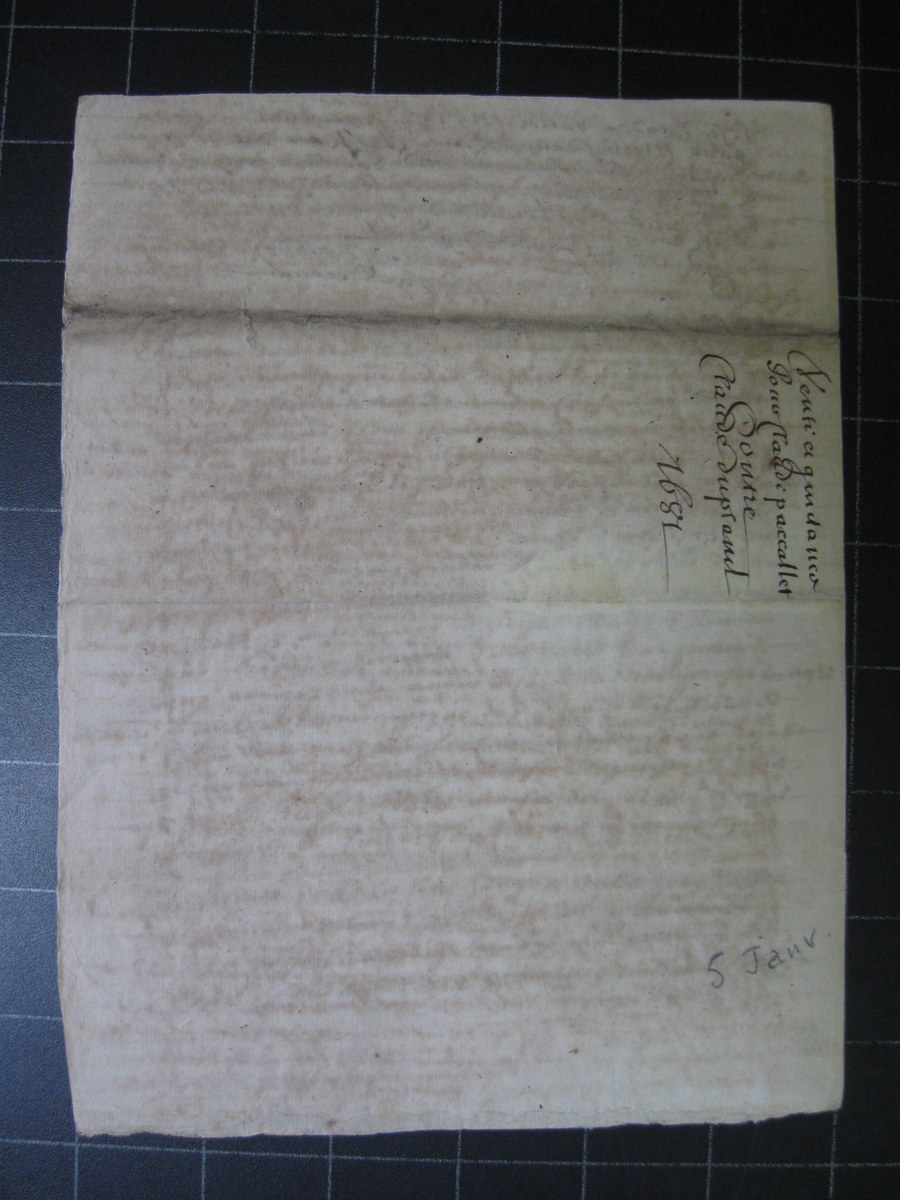 Vente et quittance
Pour Claude paccallet
Contre
Claude dupland
1681
5 Janv.